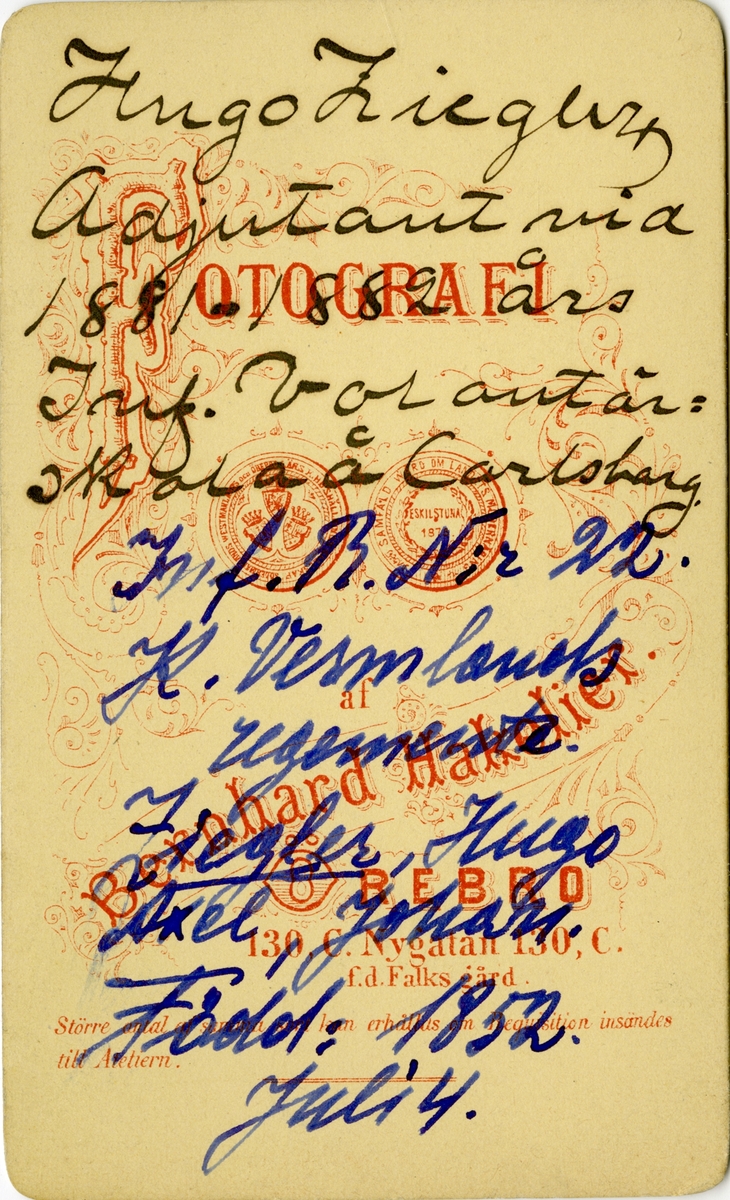 Hugo Ziegler
Adjutant vid
FOTOGRAFI
1881-1882 års
Inf. Volontär=
skola å Carlsberg.
ESKILSTUNA
Inf. R. N:r 22.
K. Vermlands
af
regemente.
Bernhard Hakelier.
Ziegler, Hugo
ÖREBRO
Axel, Johan.
130, C. Nygatan 130, C.
f.d. Falks gård.
Född: 1852.
Större antal af samma kort kan erhållas om Requisition insändes
till Ateliern.
Juli 4.